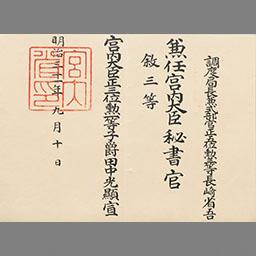 調度局長兼式部官正五位勲四等長﨑省吾
兼任宮内大臣秘書官
敘三等
宮内大臣正三位勲一等子爵田中光顯宣
明治三十一年九月十日
宮内
省印